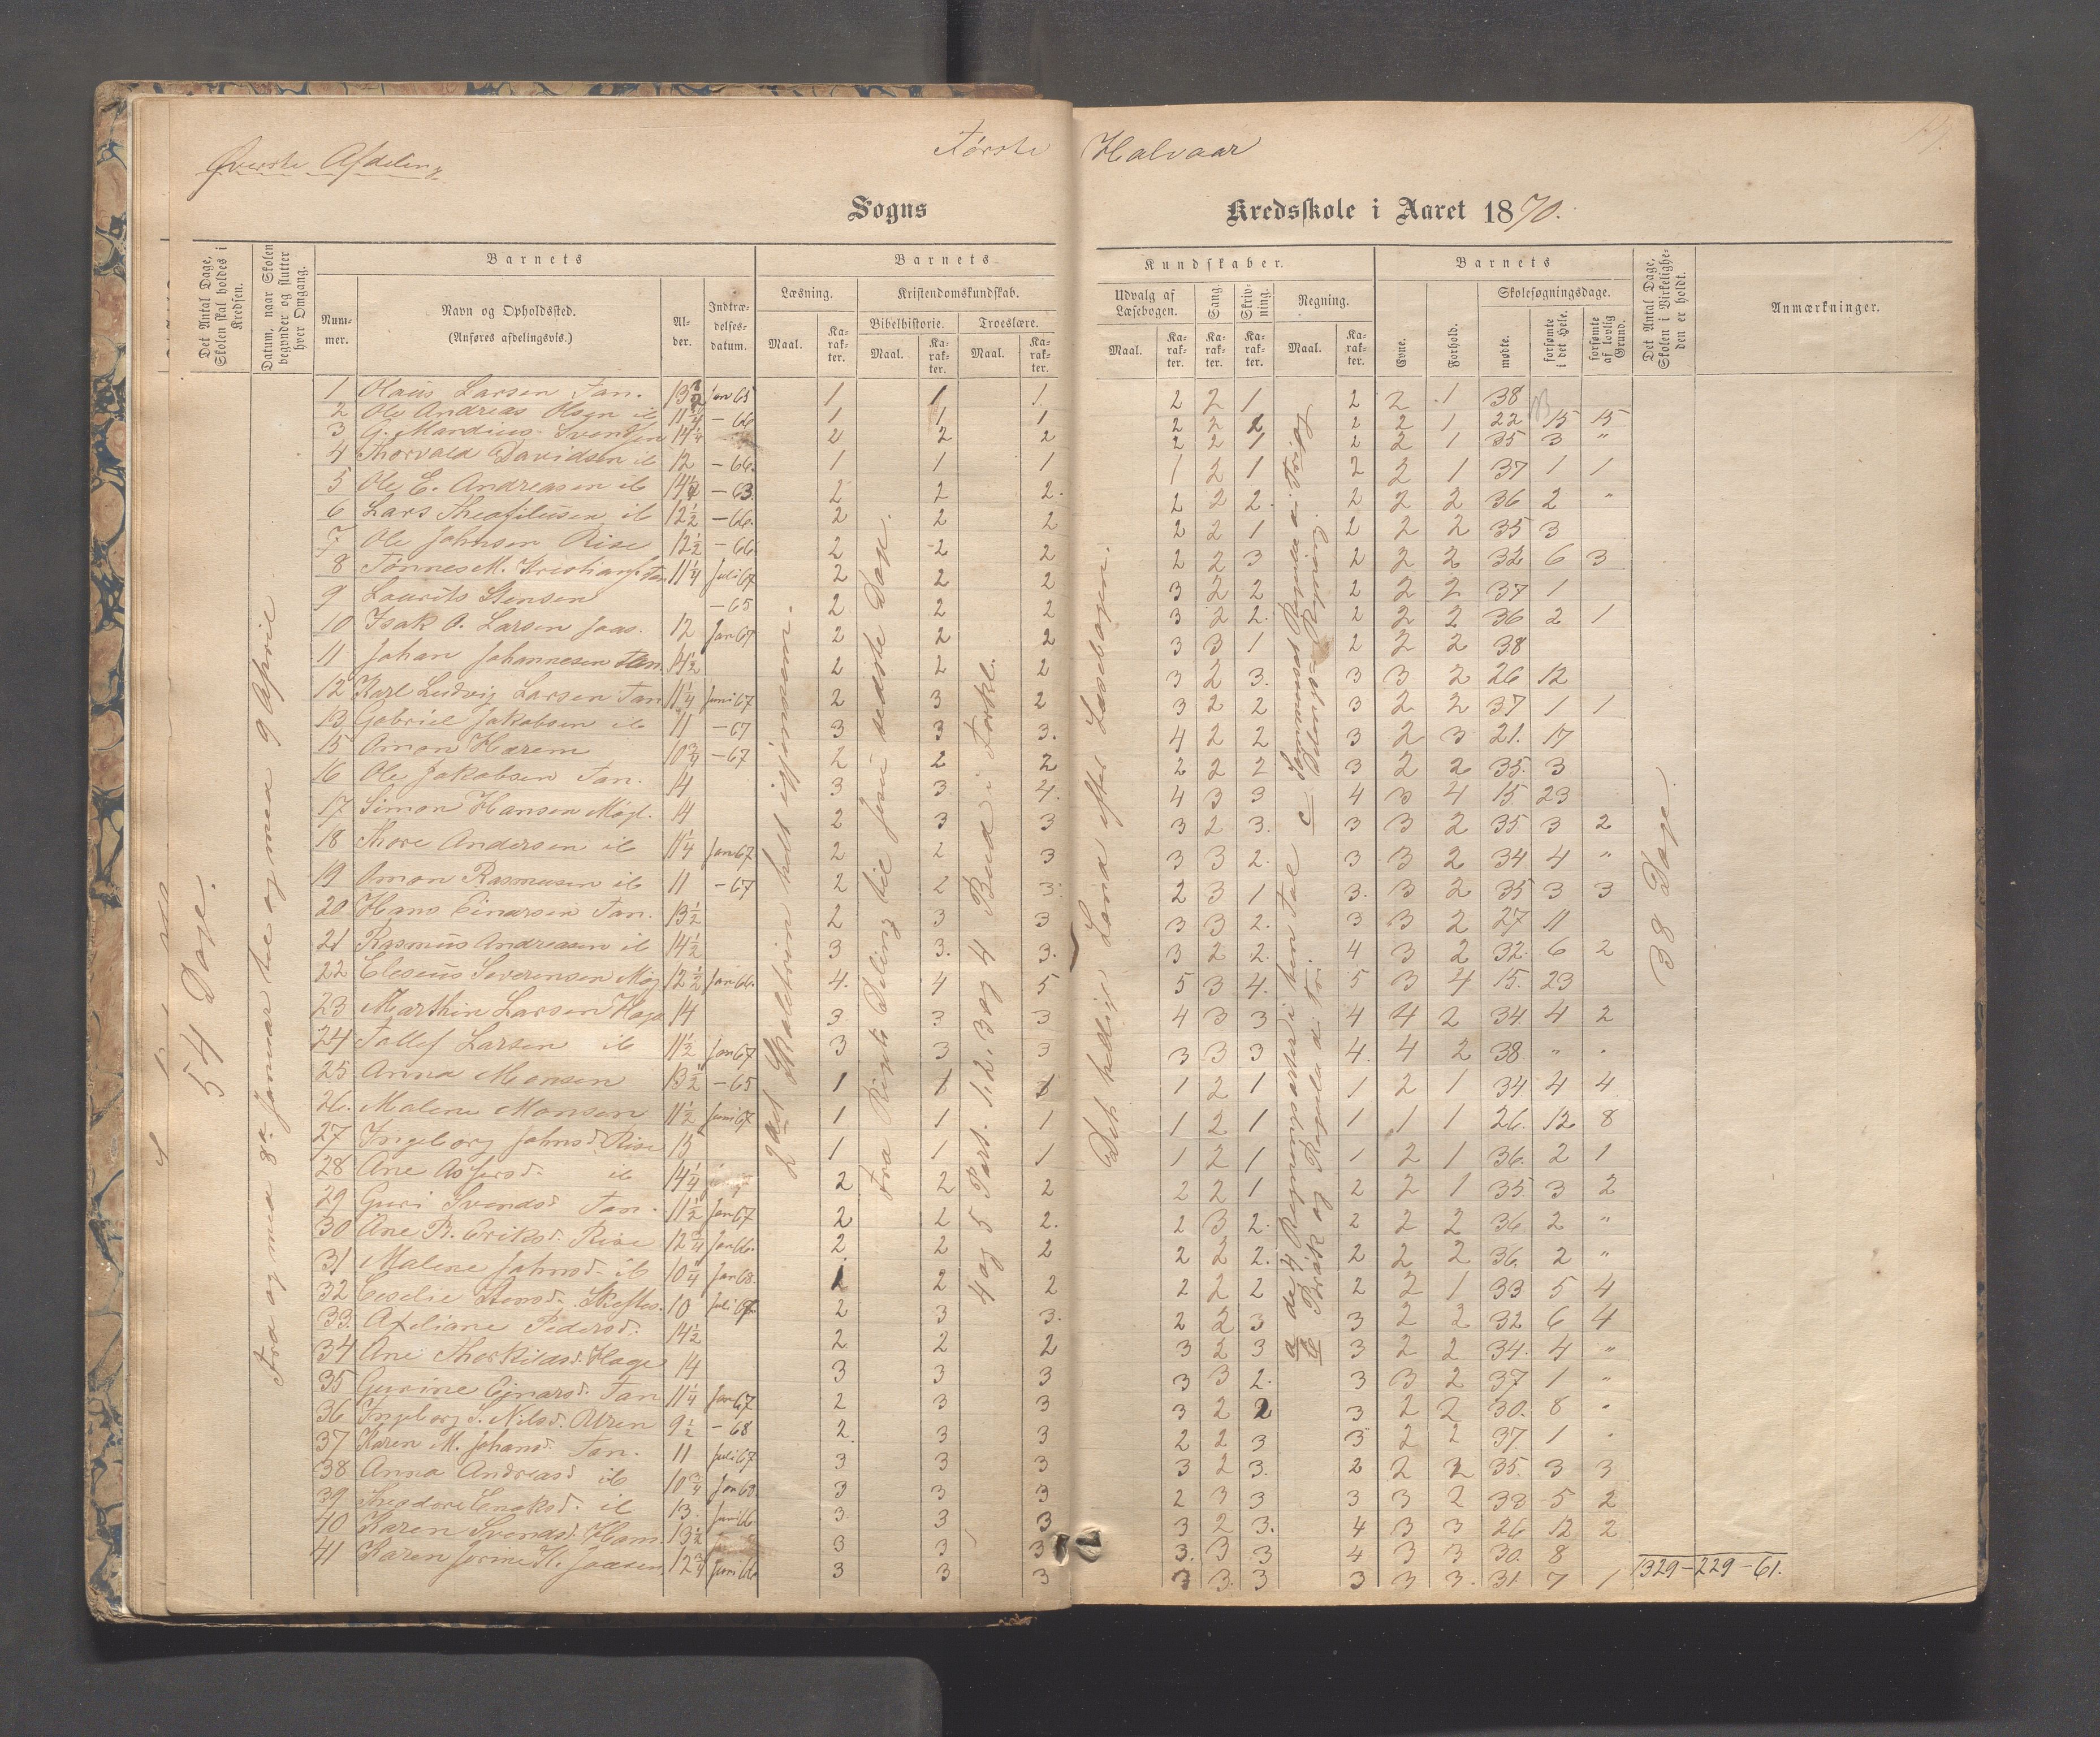 Øverste Afdeling
Første Halvaar
Sogns
Kredsskole i Aaret 1870.
Det Antal Dage, Skolen skal holdes i Kredsen.
Datum, naar Skolen begynder og slutter hver Omgang.
Barnets
Nummer.
Navn og Opholdssted.
(Anføres afdelingsvis.)
Alder.
Indtrædelsesdatum.
Barnets
Læsning.
Maal.
Karakter.
Kristendomskundskab.
Bibelhistorie.
Maal.
Karakter.
Troeslære.
Maal.
Karakter.
Kundskaber.
Udvalg af Læsebogen.
Maal.
Karakter.
Sang.
Karakter.
Skrivning.
Karakter.
Regning.
Maal.
Karakter.
Barnets
Evne.
Forhold.
Skolesøgningsdage.
mødte.
forsømte i det Hele.
forsømte af lovlig Grund.
Det Antal Dage, Skolen i Virkeligheden er holdt.
Anmærkninger.
54 Dage.
Fra og med 8de Januar til og med 9 April
4 og 5 Part. 1. 2. 3 og 4 Bud i Forkl.
38 Dage
1 Olaus Larsen Tan. 13 1/2 Jan 65 1 1 1 2 2 1 2 2 1 38
2 Ole Andreas Olsen ib 11 3/4 – 66 1 1 1 2 2 2 2 2 1 22 15 15
3 G. Mardius Svendsen 14 1/4 2 2 2 2 2 1 2 2 1 35 3 "
4 Thorvald Davidsen ib 12 – 66. 1 1 1 1 2 1 2 2 1 37 1 1
5 Ole E. Andreasen ib 14 1/4 – 63. 2 2 2. 2 2 2. 2 2 2 36 2 "
6 Lars Theofilusen ib 12 1/2 – 66. 2 2 2 2 2 1 2 2 2 35 3
7 Ole Johnsen Rise 12 1/2 – 66 2 2 2 2 2 3 2 2 2 32 6 3
8 Tønnes M. Kristians. Tan 11 1/4 Juli 67 2 2 2 3 2 2 2 2 2 37 1
9 Laurits Stensen – 65 2 2 2 3 2 2. 2 2 2 36 2 1
10 Isak O. Larsen Jaas. 12 Jan 67 2 2 2 3 3 1 2 2 2 38
11 Johan Johannesen Tan. 14 1/2 2 2 2 3 2 3. 3 3 2 26 12
12 Karl Ludvig Larsen Tan 11 1/4 Juni 67 2 3 2 3 2 2 3 2 2 37 1 1
13 Gabriel Jakobsen ib 11 – 67 3 3 3. 4 2 2 3 2 3 21. 17
15 Omon Hærem 10 3/4 – 67 2 2 2 2 2 2 3 2 2 35. 3
16 Ole Jakobsen Tan. 14 3 3 4. 4 3 3 4 3 4 15. 23
17 Simon Hansen Mögl. 14 2 3 3 3 2 3. 3 3 2 35 3 2
18 Thore Andersen ib 11 1/4 Jan 67 2 2 3 3 3 2. 3 3 2 34 4 "
19 Omon Rasmusen ib 11 – 67 2 2 3 2 3 1 3. 3 2 35 3 3
20 Hans Einarsen Tan. 13 1/2 2 3 3 3 3 2. 3 3 2 27 11
21 Rasmus Andreasen ib 14 1/2 3 3. 3. 3 2 2. 4 3 2 32. 6 2
22 Eleseus Severensen Mög 12 1/2 Jan 66. 4. 4 5 5 3 4. 5 3 4 15. 23
23 Marthin Larsen Hage 14 3. 3 3 4 3 3 4 4 2 34. 4 2
24 Tollef Larsen ib 11 1/2 Jan 67 3 3 3 3 3 3 4. 4 2 38. " "
25 Anna Monsen 13 1/2 – 65 1 1 1 1 2 1 1 2 1 34 4 4
26. Malene Monsen 11 1/2 Juni 67 1 1 1 1 2 1 1 1 1 26. 12 8
27 Ingeborg Johnsd. Rise 15 1 1 1 1 2 1 1 2 1 36. 2 1
28 Ane Asfersd. ib 14 1/4 2 2 2 2 2 1 2 2 1 35. 3 2
29 Guri Svendsd. Tan. 11 1/2 Jan 67 2 2 2. 2 3 2. 2 2 2 36 2 "
30 Ane B. Eriksd. Rise 12 3/4 Jan 66. 2 2 2 2 2 2. 2 2 2 36. 2 "
31 Malene Johnsd. ib 10 1/4 Jan 68. 1 2 2 2 2 2 2 2 1 33 5 4
32 Ceselie Stensd. 10 Juli 67 2 3 3. 2 2 3 3 2 2 32 6 4
33. Axeliane Pedersd. 14 1/2 2 2 2 3 2 3 3 2 2 34. 4 "
34 Ane Thorkildsd. Hage 14 3 3 3 3 3 2. 3 3 2 37 1 "
35 Gurine Ejnarsd. Tan 11 1/4 Jan 67 2 3 3 3 2 2 3 2 2 30. 8 "
36 Ingeborg S. Nilsd. Uren 9 1/2 – 68 2. 3 3 2 2 3 3 2 2 37. 1 "
37 Karen M. Johansd. Tan. 11 Juli 67 3 3 3 3 2 3. 2 2 2 35. 3 3
38 Anna Andreasd ib 10 3/4 Jan 68 3 3 3 2 3 3 3 3 2 33 5 2
39 Theodore Enoksd. ib 13. Juni 66 3 3 3 3 2 3. 4 3 3 26 12 2
40 Karen Svendsd. Ham. 13 1/2 3 3 3 3. 3 3 4 3 3 30. 8
41 Karen Jorine K. Jaasen 12 3/4 Juni 66 3 3 3 3 3. 3 3 3 3. 31. 7 1
1329 – 229 – 61.